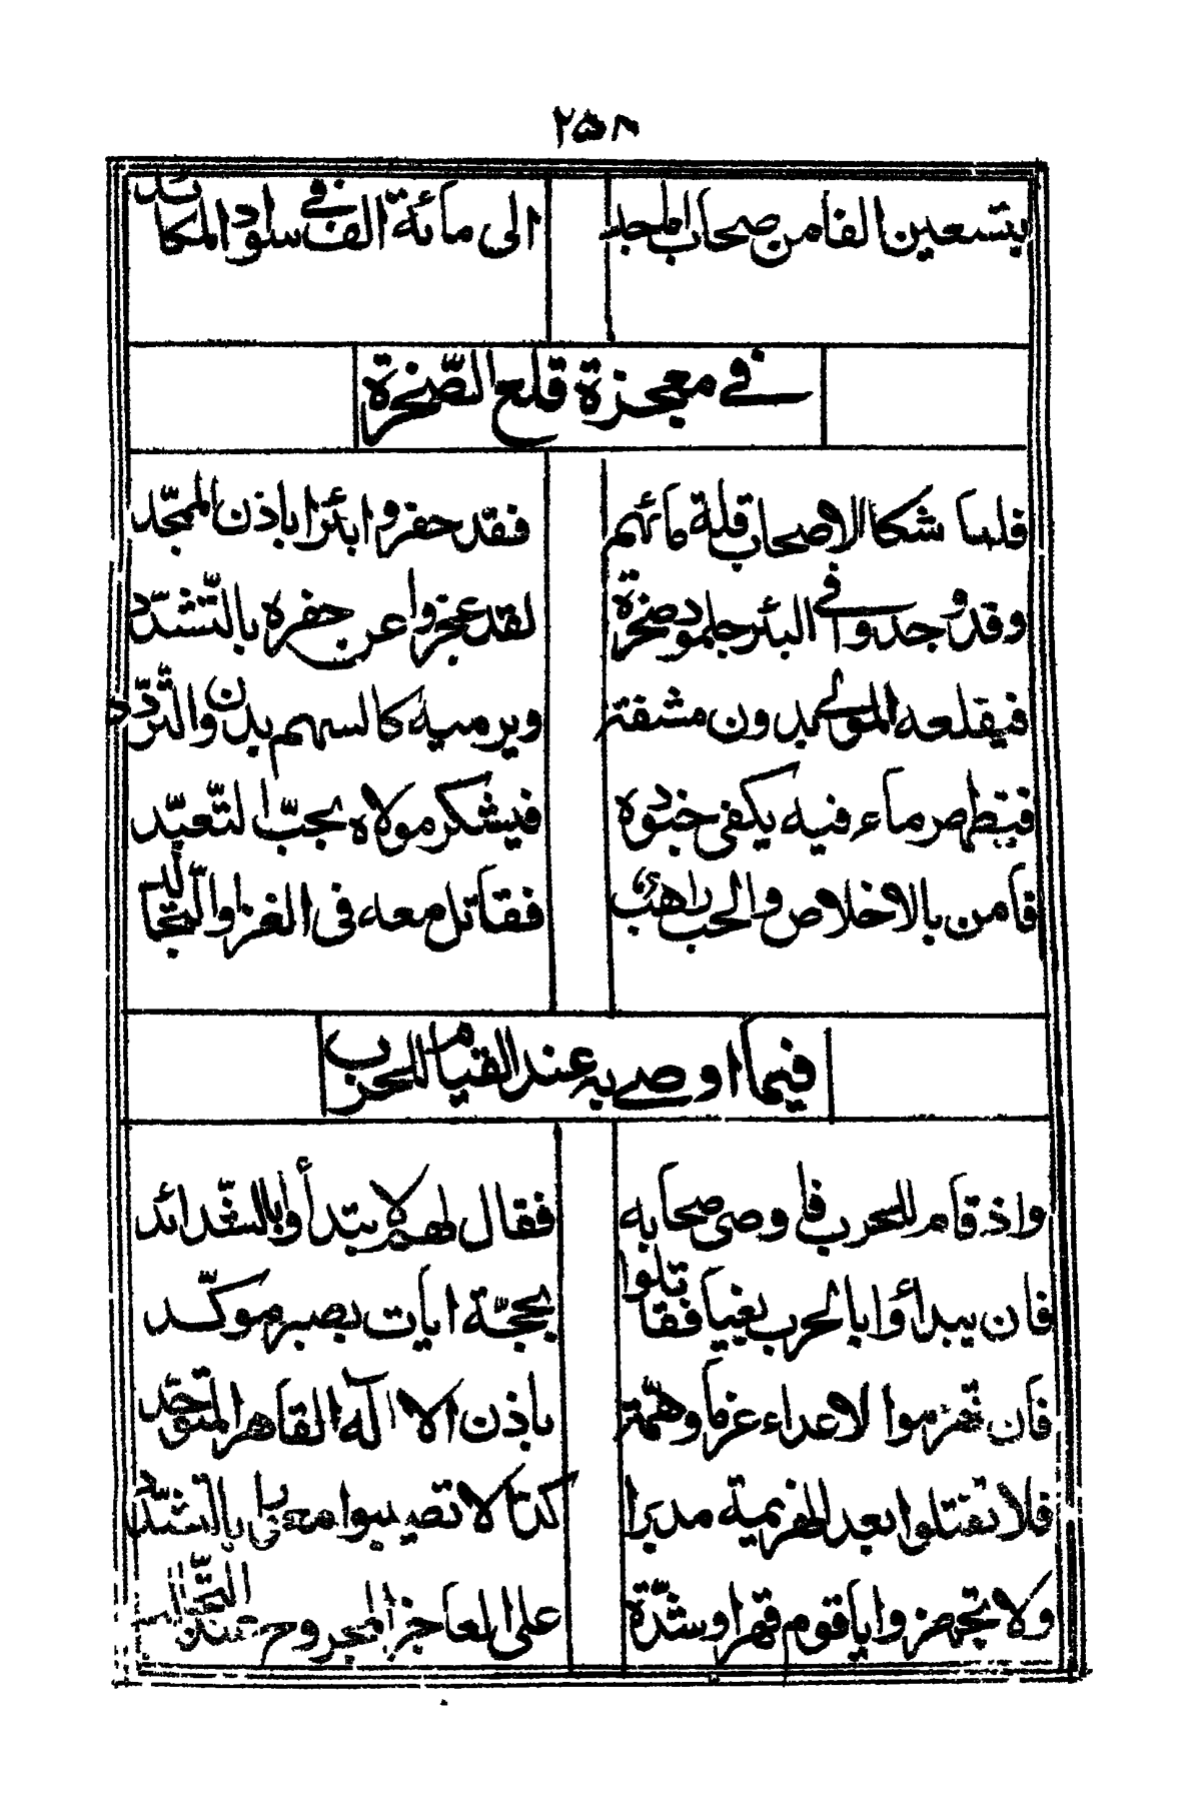 ٢٥٨
بتسعین الفا من صحاب المجد الی مائة الف فی سواد المکائد
فی معجزة قلع الصّخرة
فلما شکا الاصحاب قلة مائهم فقد حفروا بئرا باذن الممجّد
وقد وجدوا فی البئر جلمود صخرة لقد عجزوا عن حفره بالتّشدّد
فیقلعه المولی بدون مشقة ویرمیه کالسهم بدون التّردّد
فیظهر ماء فیه یکفی جنوده فیشکر مولاه بحبّ التّعبّد
فامن بالاخلاص والحب راهب فقاتل معه فی الغزا والتجالد
فیما اوصی به عند القیام للحرب
واذ قام للحرب فاوصی صحابه فقال لهم لا یبتدأوا بالشّدائد
فان یبدأوا بالحرب بغیا فقاتلوا بحجّة ایات بصبر موکّد
فان تهزموا الاعداء عزما وهمّة باذن الا اله القاهر المتوحّد
فلا تقتلوا بعد الهزیمة مدبرا کذا لا تصیبوا بالتشدّد
ولا تجهزوا یا قوم قهرا وشدّة علی العاجز المجروح عند